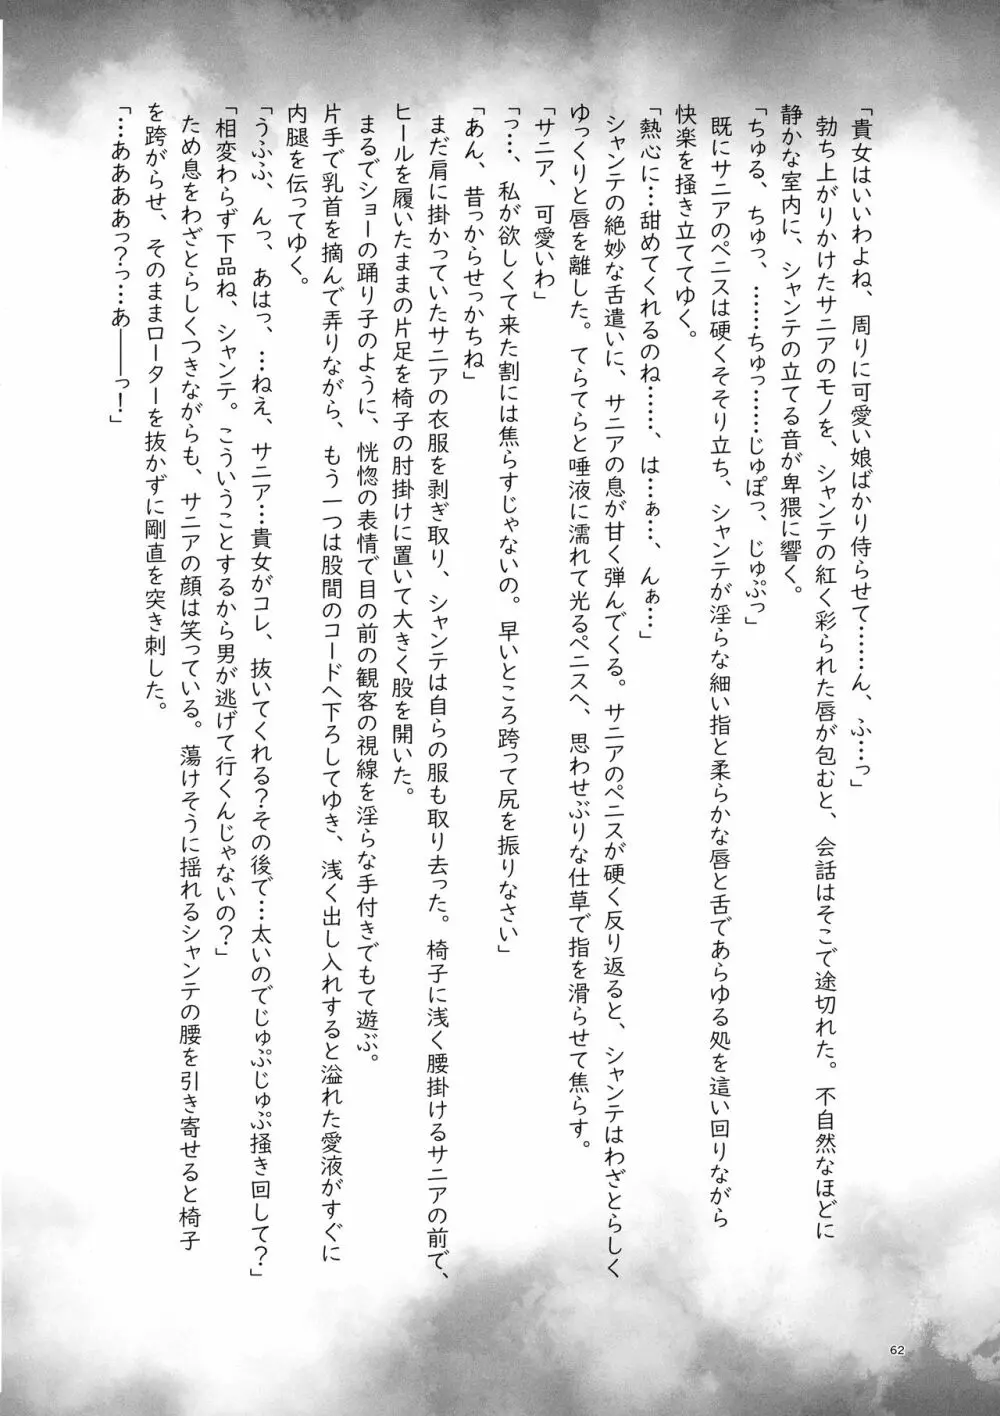 「貴女はいいわよね、周りに可愛い娘ばかり侍らせて………ん、ふ…っ」
勃ち上がりかけたサニアのモノを、シャンテの紅く彩られた唇が包むと、会話はそこで途切れた。不自然なほどに
静かな室内に、シャンテの立てる音が卑猥に響く。
「ちゅる、ちゅっ、……ちゅっ……じゅぽっ、じゅぷっ」
既にサニアのペニスは硬くそそり立ち、シャンテが淫らな細い指と柔らかな唇と舌であらゆる処を這い回りながら
快楽を掻き立ててゆく。
「熱心に…舐めてくれるのね……、は…ぁ…、んぁ…」
シャンテの絶妙な舌遣いに、サニアの息が甘く弾んでくる。サニアのペニスが硬く反り返ると、シャンテはわざとらしく
ゆっくりと唇を離した。てらてらと唾液に濡れて光るペニスへ、思わせぶりな仕草で指を滑らせて焦らす。
「サニア、可愛いわ」
「っ…、私が欲しくて来た割には焦らすじゃないの。早いところ跨って尻を振りなさい」
「あん、昔っからせっかちね」
まだ肩に掛かっていたサニアの衣服を剥ぎ取り、シャンテは自らの服も取り去った。椅子に浅く腰掛けるサニアの前で、
ヒールを履いたままの片足を椅子の肘掛けに置いて大きく股を開いた。
まるでショーの踊り子のように、恍惚の表情で目の前の観客の視線を淫らな手付きでもて遊ぶ。
片手で乳首を摘んで弄りながら、もう一つは股間のコードへ下ろしてゆき、浅く出し入れすると溢れた愛液がすぐに
内腿を伝ってゆく。
「うふふ、んっ、あはっ、…ねえ、サニア…貴女がコレ、抜いてくれる？その後で…太いのでじゅぷじゅぷ掻き回して？」
「相変わらず下品ね、シャンテ。こういうことするから男が逃げて行くんじゃないの？」
ため息をわざとらしくつきながらも、サニアの顔は笑っている。蕩けそうに揺れるシャンテの腰を引き寄せると椅子
を跨がらせ、そのままローターを抜かずに剛直を突き刺した。
「…ああああっ？っ…あ――っ！」
62